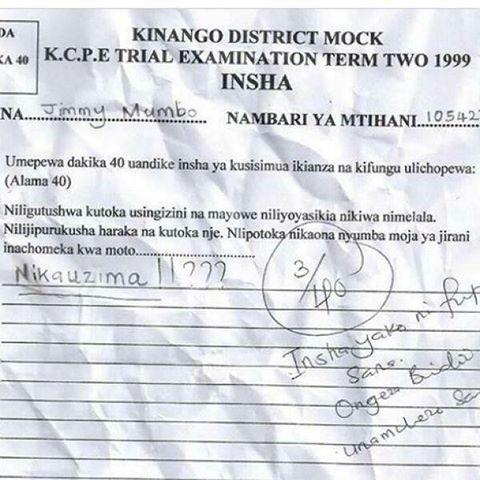 DA
KA 40
KINANGO DISTRICT MOCK
K.C.P.E TRIAL EXAMINATION TERM TWO 1999
INSHA
NA....Jimmy Mumbo.... NAMBARI YA MTIHANI...10542
Umepewa dakika 40 uandike insha ya kusisimua ikianza na kifungu ulichopewa:
(Alama 40)
Niligutushwa kutoka usingizini na mayowe niliyoyasikia nikiwa nimelala.
Nilijipurukusha haraka na kutoka nje. Nlipotoka nikaona nyumba moja ya jirani
inachomeka kwa moto..............................
Nikauzima !!???
3/40
Insha yako ni fup
Sana.
Ongeza Bidii
unamchezo Sa